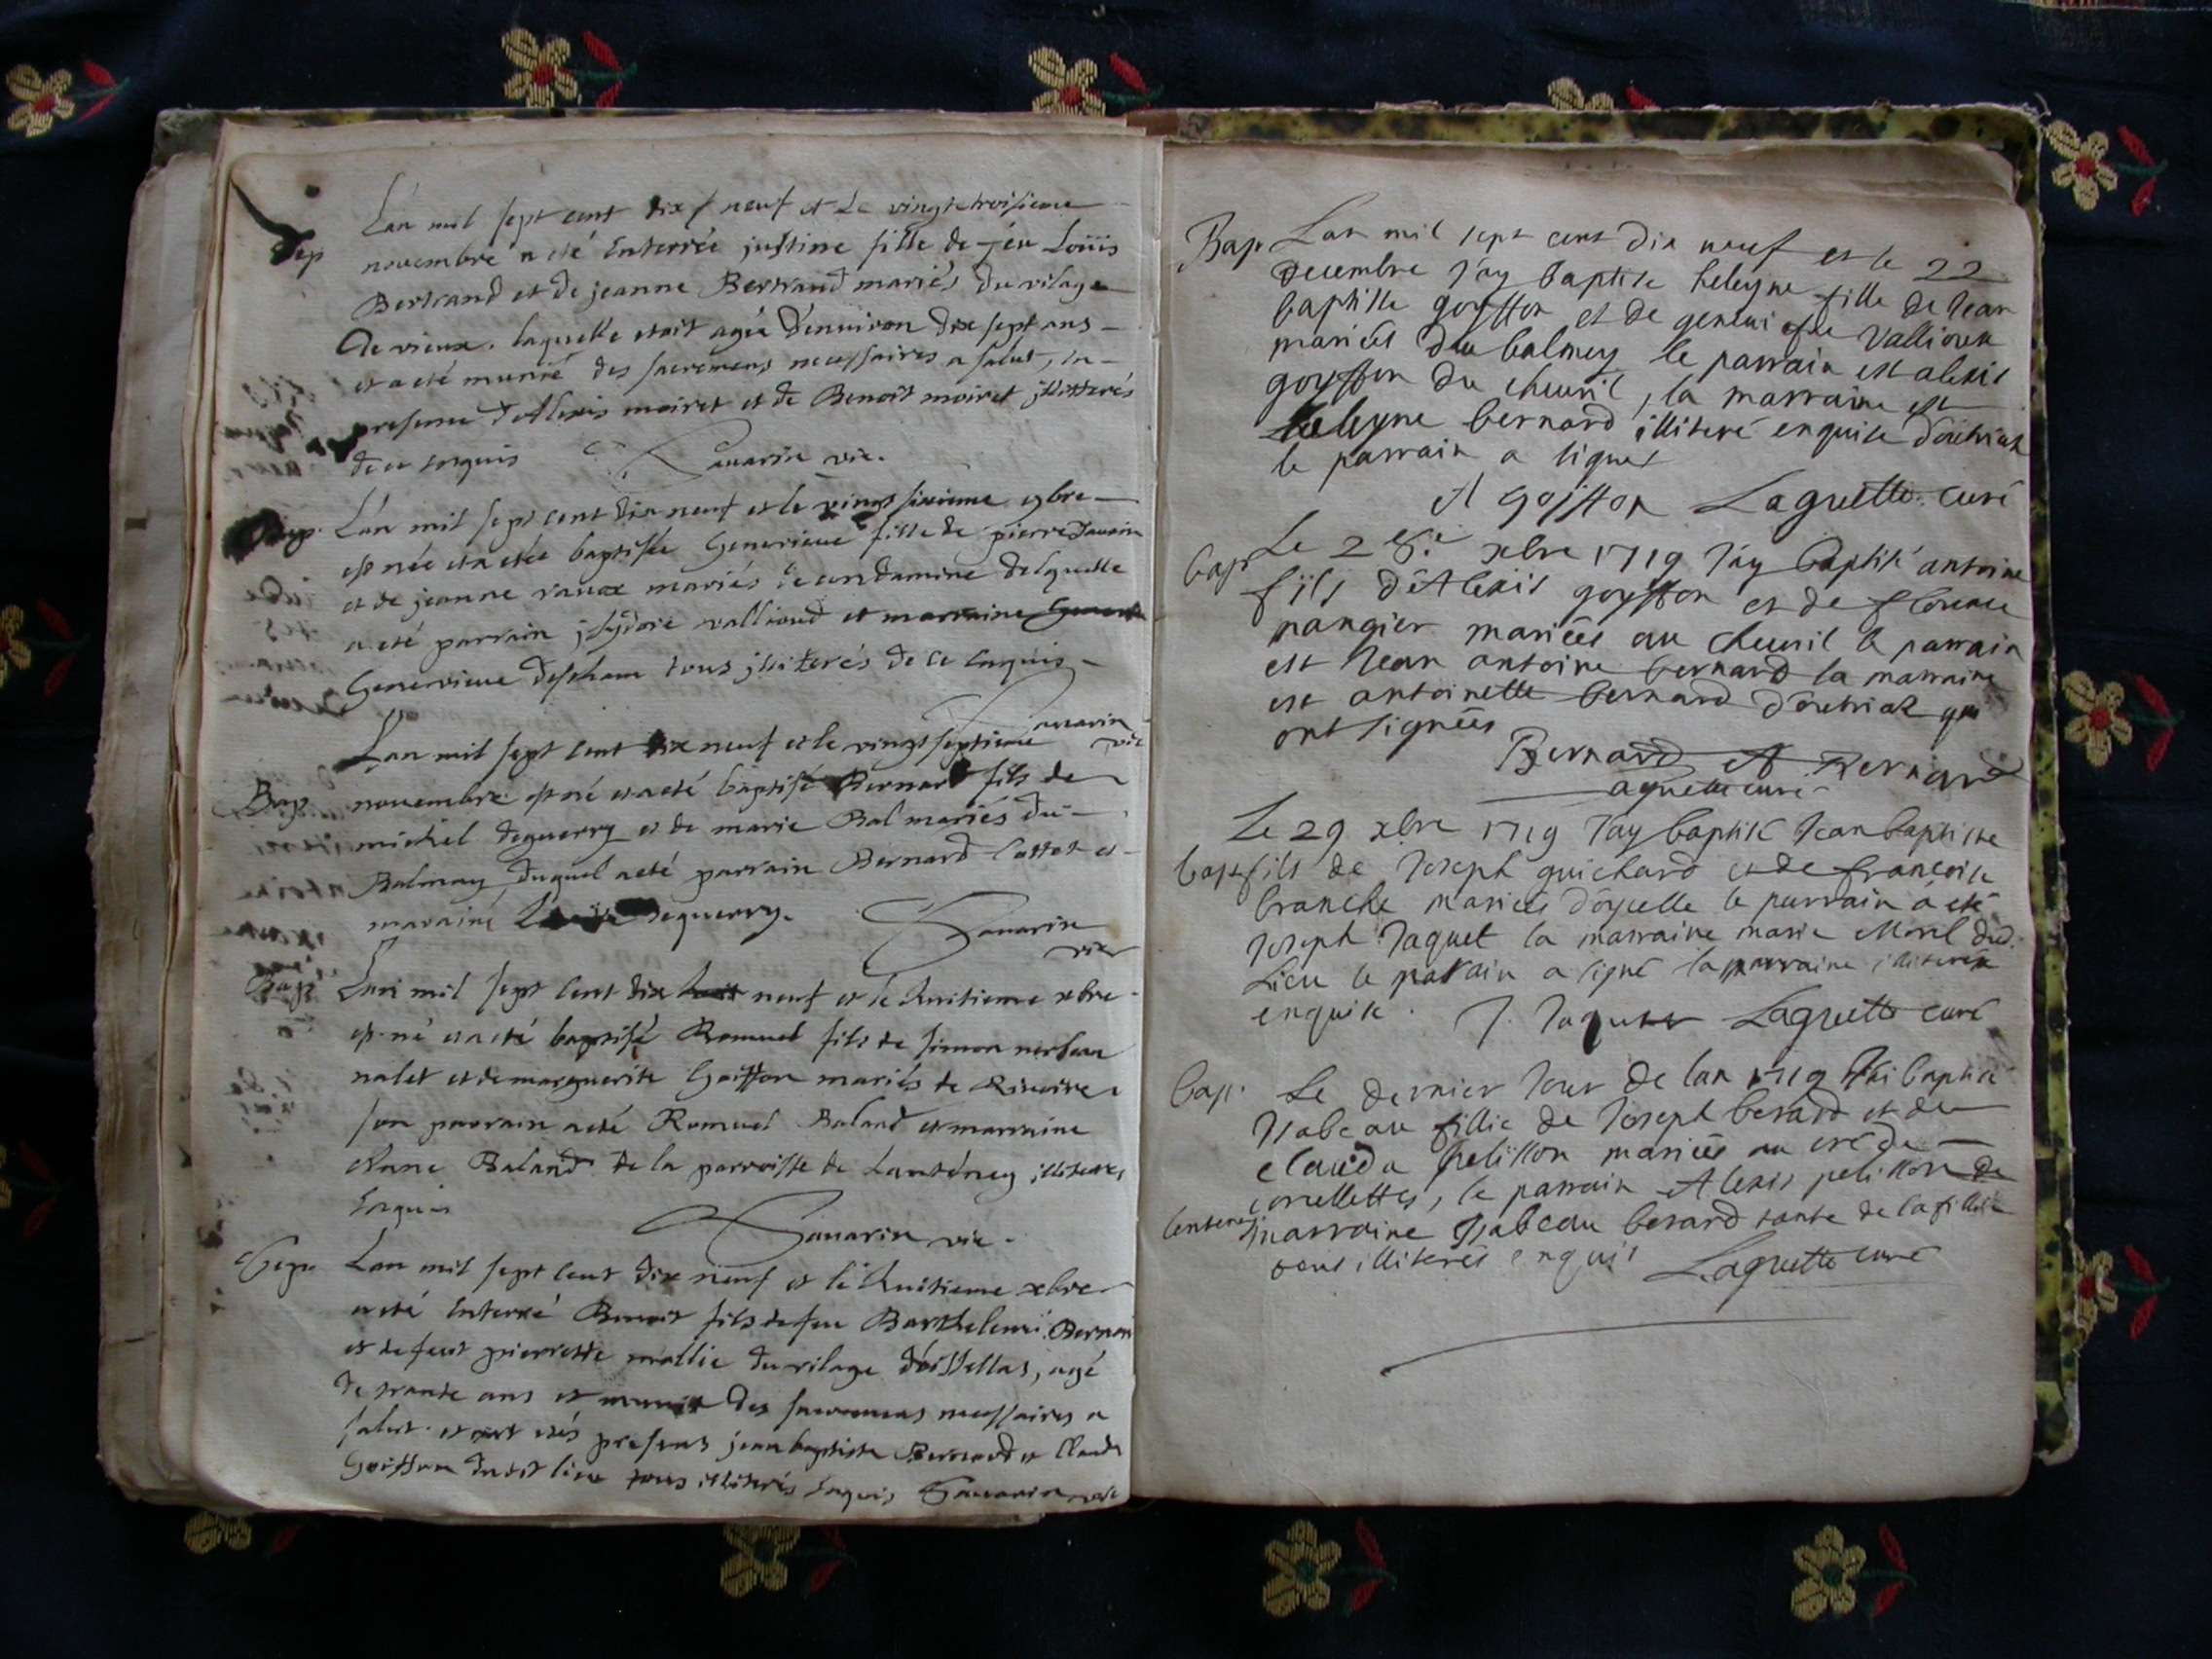 Sep
L'an mil sept cent dix neuf et le vingtetroisieme
novembre a eté enterrée justine fille de feu Loüis
Bertrand et de jeanne Bertrand mariés du vilage
de vieux. laquelle etait agée d'enuiron dix sept ans
et a eté munie des sacremens necessaires a salut, en
presence d'Alexis moiret et de Benoit moiret illitterés
de ce enquis Sauarin vic.
Bap. L'an mil sept cent dix neuf et le vingt sixieme 9bre
est née et a etée baptisée Genevieue fille de pierre
et de jeanne mariés de condamine delquelle
a eté parrain jsydore vallioud et marraine
Genevieue tous illiterés de ce enquis
Sauarin vic
L'an mil sept cent dix neuf et le vingt septieme
Bap. novembre est né et a eté baptisé Bernard fils de
michel deguerry et de marie Bal mariés du
Balmay duquel a eté parrain Bernard et
maraine deguerry. Sauarin
vic
Bap. L'an mil sept cent dix neuf et le huitieme xbre
est né et a eté baptisé Romuel fils de simon
nalet et de marguerite Goiffon mariés de
son parrain a eté Romuel Baland et marraine
Anne Baland de la parroisse de illiterés
enquis
Sauarin vic.
Sep. L'an mil sept cent dix neuf et le huitieme xbre
a eté enterré Benoit fils de feu Barthelemi Bernard
et de feue pierrette mallie du vilage agé
de trante ans et munit des sacremens necessaires a
salut. et ont etés presens jean baptiste Bernard et Claude
Goiffon dudit lieu tous illiterés enquis Sauarin vic
Bap Lan mil sept cent dix neuf et le 22
decembre J'ay baptisé heleyne fille de Jean
baptiste goyffon et de geneviefue Vallioux
mariés du balmey le parrain est alexis
goyffon du cheuril, la marraine est
heleyne bernard illiteré enquise d'outriaz
le parrain a signet
A Goiffon Laguette curé
bap Le 28.e xbre 1719 J'ay baptisé antoine
fils d'Alexis goyffon et de
pangier mariées au cheuril le parrain
est Jean antoine bernard la marraine
est antoinette bernard d'outriaz qui
ont signées
Bernard A Bernard
Laguette curé
Le 29 xbre 1719 J'ay baptisé Jean baptiste
bap fils de Joseph guichard et de françoise
branche mariées d'oyselle le parrain a eté
Joseph Jaquet la marraine marie Morel dud.
Lieu le parrain a signé la marraine illiterée
enquise. J. Jaquet Laguette curé
bap. Le dernier Jour de lan 1719 J'ai baptisé
Isabeau fillie de Joseph berard et de
clauda pelisson mariées au cré de
corcellettes, le parrain Alexis pelisson
marraine Isabeau berard tante de la fillie
tous illiterés enquis Laguette curé